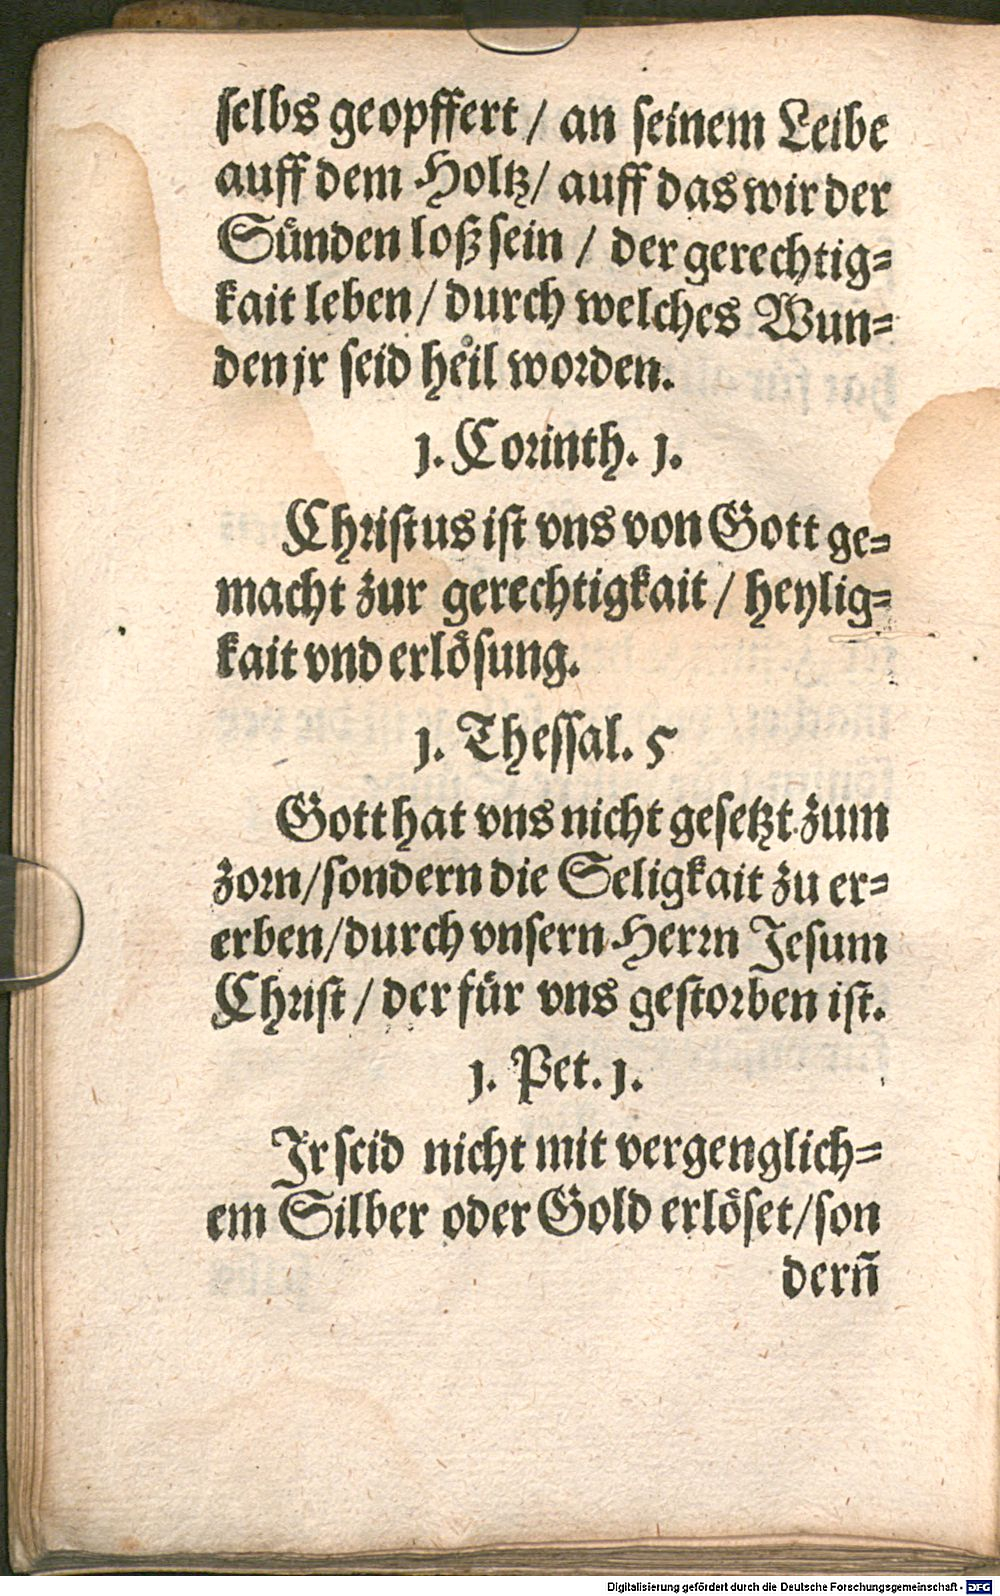 selbs geopffert / an seinem Leibe
auff dem Holtz / auff das wir der
Sünden loß sein / der gerechtig=
kait leben / durch welches Wun=
den jr seid heil worden.
1. Corinth. 1.
Christus ist vns von Gott ge=
macht zur gerechtigkait / heylig=
kait vnd erlösung.
1. Thessal. 5
Gott hat vns nicht gesetzt zum
zorn / sondern die Seligkait zu er=
erben / durch vnsern Herrn Jesum
Christ / der für vns gestorben ist.
1. Pet. 1.
Jr seid nicht mit vergenglich=
em Silber oder Gold erlöset / son
dern̄
Digitalisierung gefördert durch die Deutsche Forschungsgemeinschaft - DFG